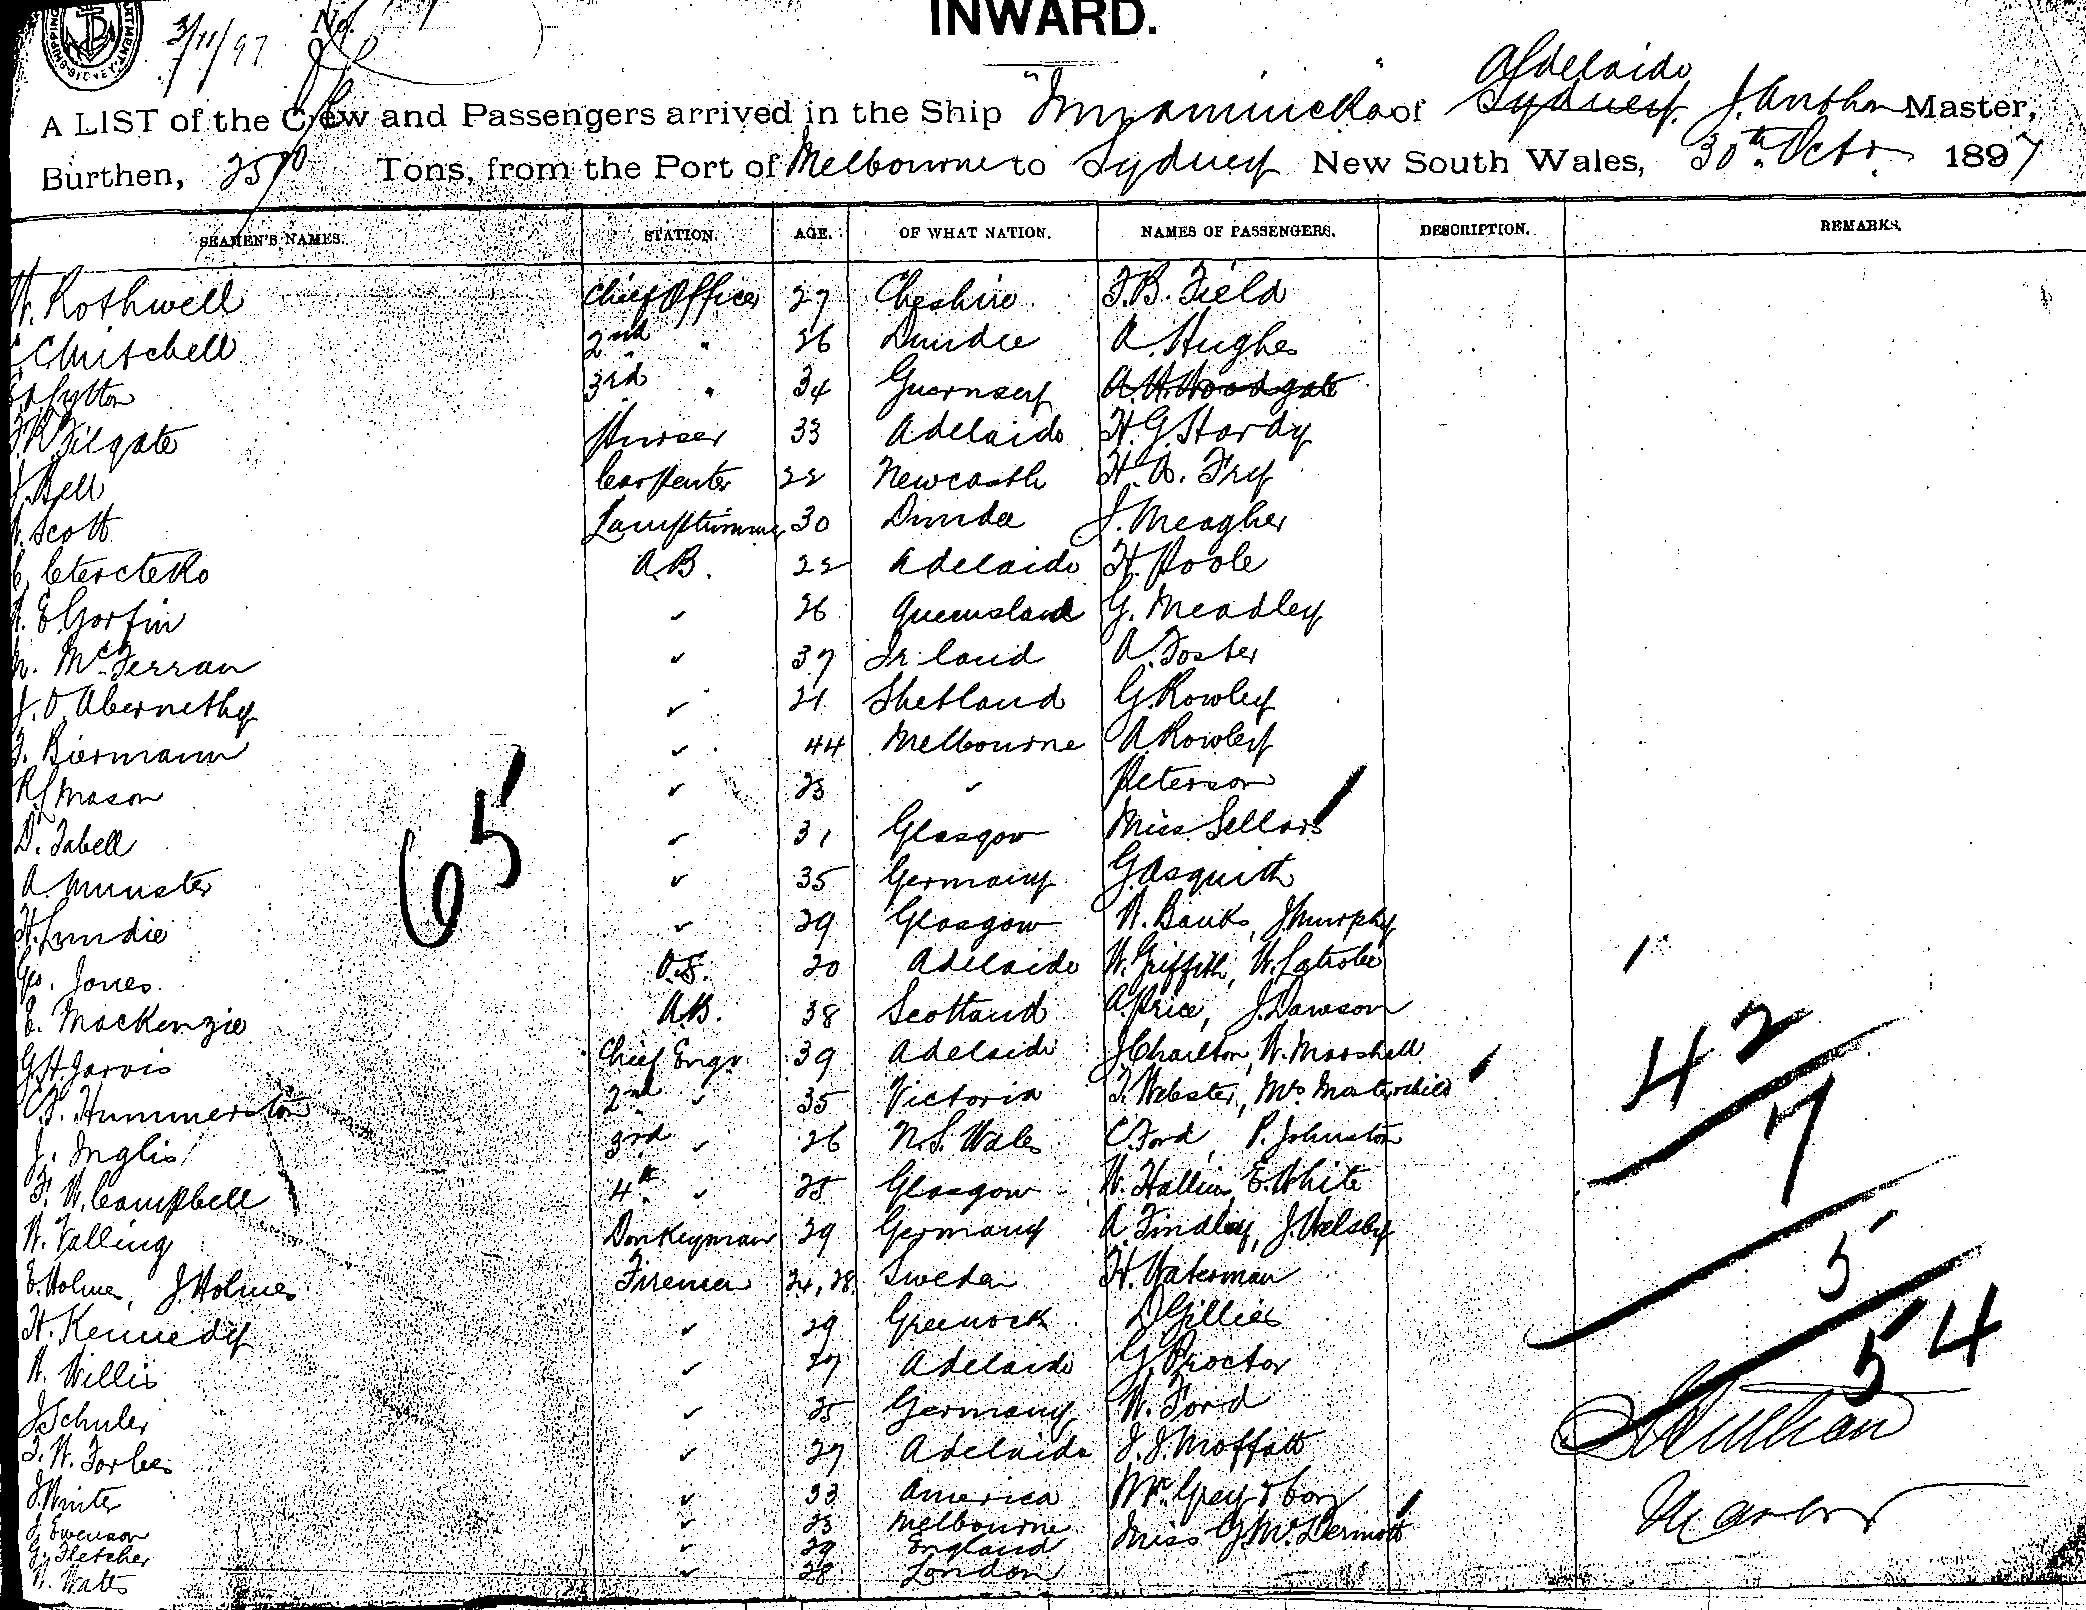 INWARD.
3/11/97 No.
Adelaide
A LIST of the Crew and Passengers arrived in the Ship "Innamincka" of Sydney. Master,
Burthen, 2500 Tons, from the Port of Melbourne to Sydney New South Wales, 30th Octr. 1897
SEAMEN'S NAMES. STATION. AGE. OF WHAT NATION. NAMES OF PASSENGERS. DESCRIPTION. REMARKS.
W. Rothwell Chief Officer 27 Cheshire F.B. Field
C Mitchell 2nd " 26 Dundee A. Hughes
Lytton 3rd " 34 Guernsey A.H. Woodgate
Filgate Purser 33 Adelaide H.G. Hardy
J. Bell Carpenter 22 Newcastle H. A. Fry
Scott Lamptrimmer 30 Dundee J. Meagher
A.B. 22 Adelaide H. Poole
E Gorfin " 26 Queensland G. Meadley
McFerran " 37 Ireland A. Foster
J. O Abernethy " 21 Shetland G. Rowley
F. Biermann " 44 Melbourne A Rowley
R J Mason " 23 " Peterson
D. Tabell " 31 Glasgow Miss Sellars
A Munster " 35 Germany G. Asquith
H. Lundie " 29 Glasgow W. Banks, J Murphy
Geo. Jones O.S. 20 Adelaide W. Griffith, W. Latrobe
E. Mackenzie A.B. 38 Scotland A. Price, J. Dawson
G H Jarvis Chief Engr 39 Adelaide J Charlton, W. Marshall
Hummerston 2nd " 35 Victoria F. Webster, Mrs
J. Inglis 3rd " 26 N.S. Wales C Ford, P. Johnston
F. W. Campbell 4th " 25 Glasgow W. Hallin, E. White
W. Valling Donkeyman 29 Germany A. Findley, J. Welsby
E. Holmes, J. Holmes Firemen 24, 28 Sweden H. Waterman
H. Kennedy " 29 Greenock D Gillies
W. Willis " 27 Adelaide G Proctor
J Schuler " 25 Germany W. Ford
F. W. Forbes " 27 Adelaide J. J. Moffatt
J. Winter " 33 America Mr. Grey & boy
J Evenson " 23 Melbourne Miss G McDermott
G. Fletcher " 29 England
W. Watts " 28 London
65
42
7
5
54